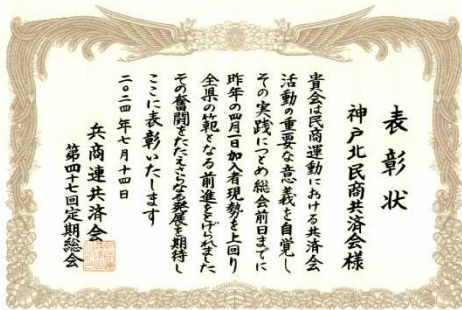 表彰状
神戸北民商共済会様
貴会は民商運動における共済会
活動の重要な意義を自覚し
その実践につとめ総会前日までに
昨年の四月一日加入者現勢を上回り
全県の範となる前進をとげられました
その奮闘をたたえさらなる発展を期待し
ここに表彰いたします
二〇二四年七月十四日
兵商連共済会
第四十七回定期総会